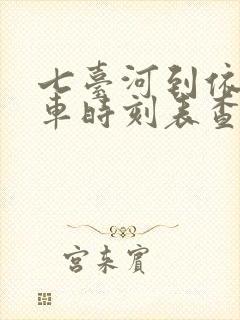 七臺河到依
車時刻表查
宮來賓